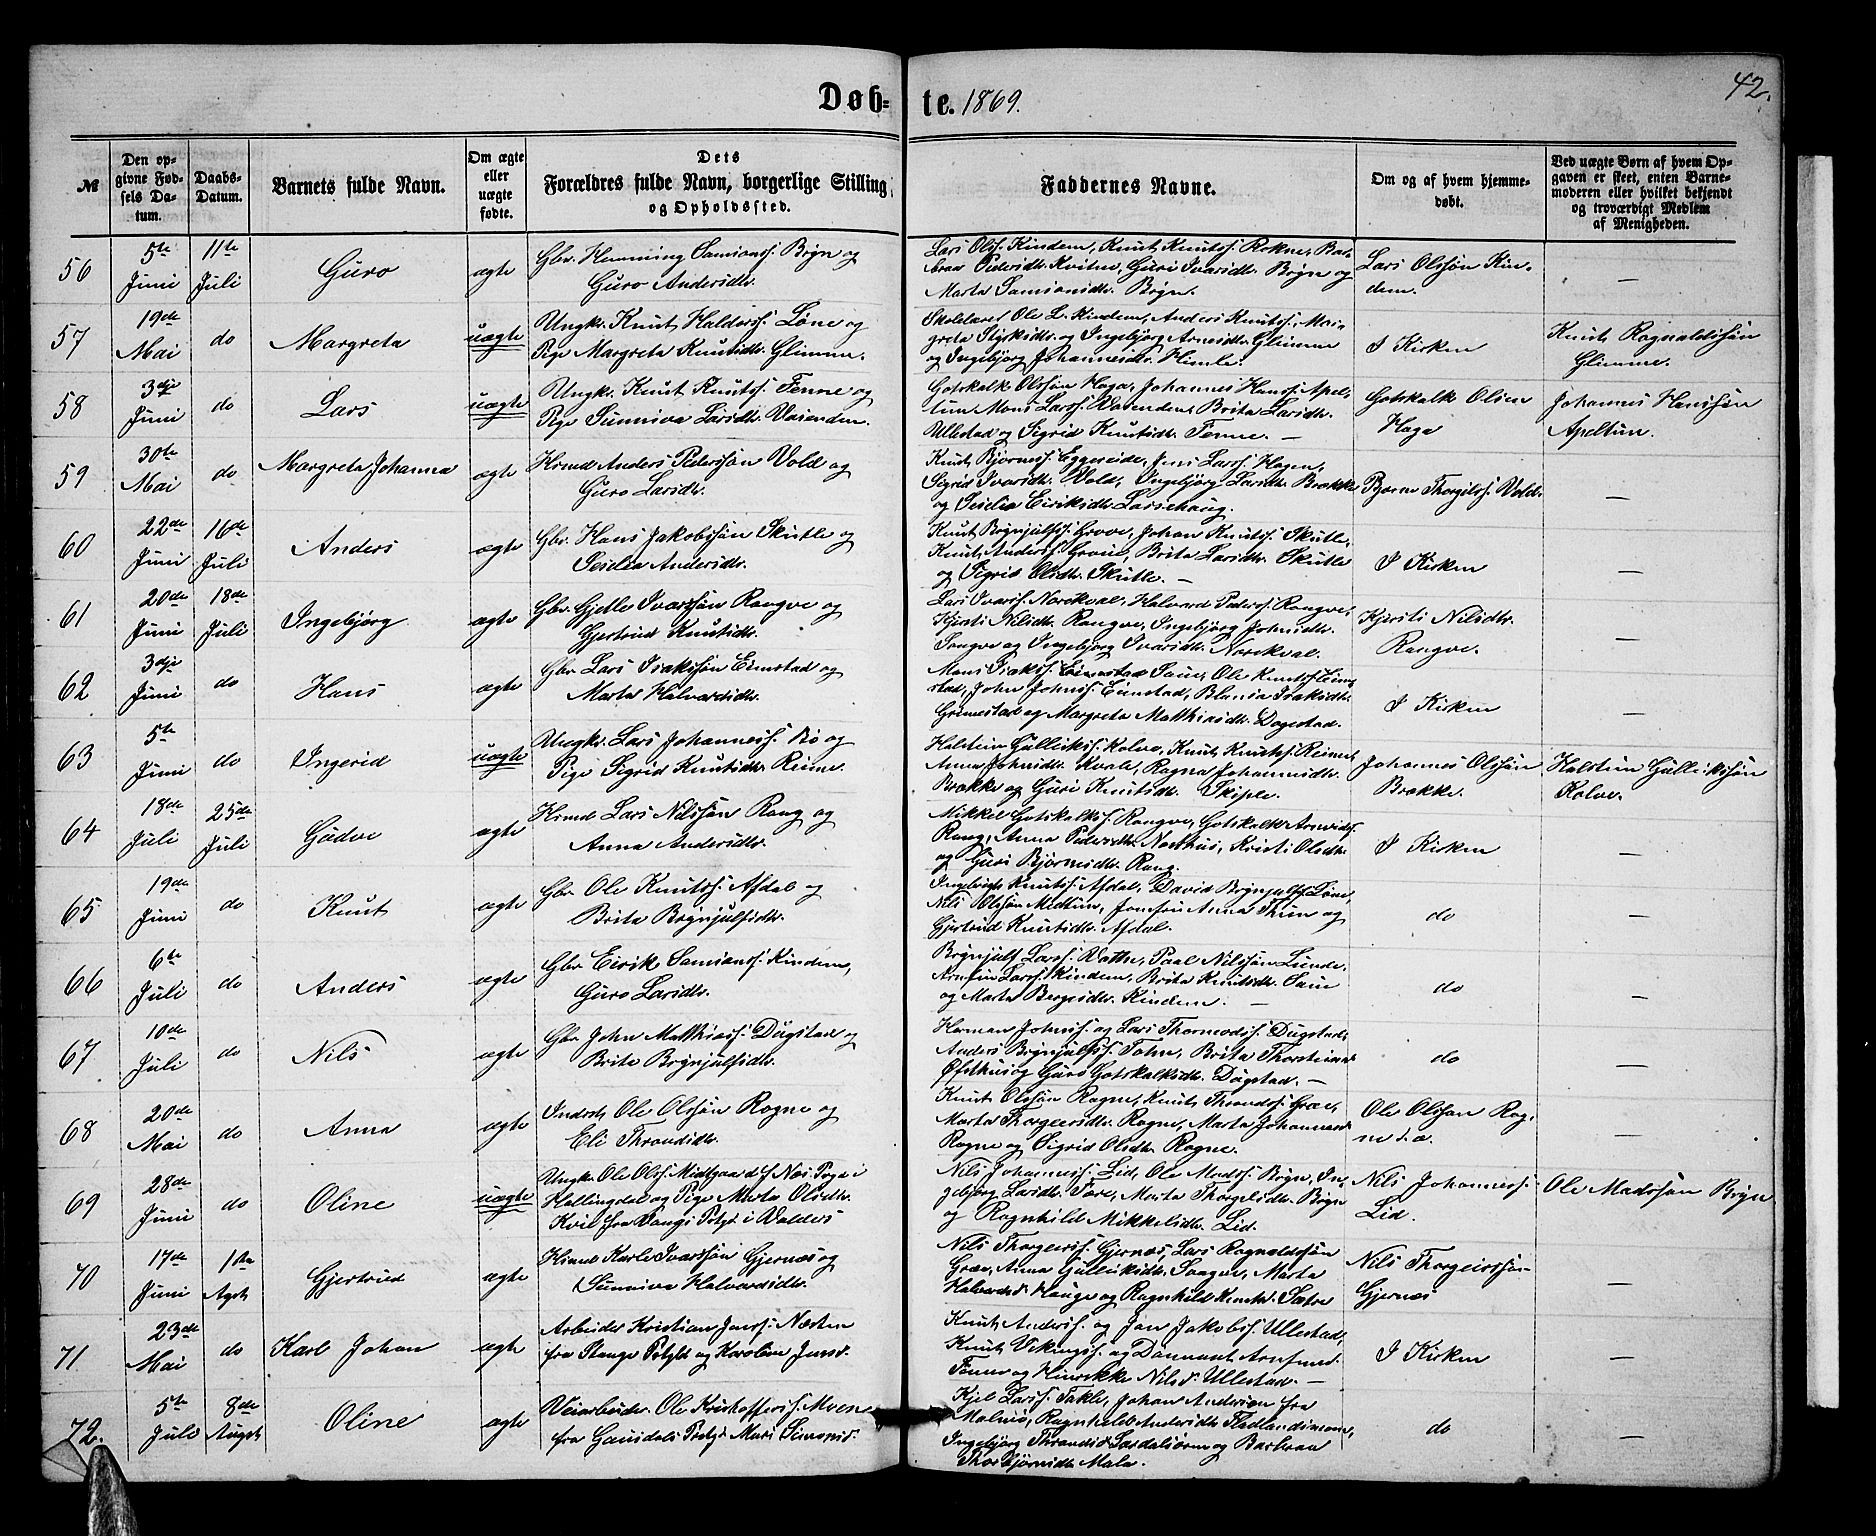 Døb-
te. 1869.
42.
№
Den op-
givne Fød-
sels Da-
tum.
Daabs-
Datum.
Barnets fulde Navn.
Om ægte
eller
uægte
fødte.
Dets
Forældres fulde Navn, borgerlige Stilling
og Opholdssted.
Faddernes Navne.
Om og af hvem hjemme-
døbt.
Ved uægte Børn af hvem Op-
gaven er skeet, enten Barne-
moderen eller hvilket bekjendt
og troværdigt Medlem
af Menigheden.
56
5te
Juni
11te
Juli
Guro
ægte
Gbr. Hemming Samsonss. Bøyn og
Guro Andersdtr.
Lars Olss. Kindem, Knut Knutss. Rokne, Bar-
braa Pedersdtr. Kvitne, Guri Ivarsdtr. Bøyn og
Marta Samsonsdtr. Bøyn.
Lars Olssøn Kin-
dem.
—
57
19de
Mai
do
Margreta
uægte
Ungkr. Knut Haldorss. Løne og
Pige Margreta Knutsdtr. Glimme.
Skolelærer Ole L. Kindem, Anders Knutss., Mar-
greta Styksdtr. og Ingebjørg Arnesdtr. Glimme
og Ingebjørg Johannesdtr. Himle.
I Kirken
Knut Ragnaldssøn
Glimme.
58
3dje
Juni
do
Lars
uægte
Ungkr. Knut Knutss. Fenne og
Pige Sunniva Larsdtr.
Gotskalk Olssøn Haga, Johannes Hanss. Apel-
tun Mons Larss. Brita Larsdtr.
Ullestad og Sigrid Knutsdtr. Fenne. —
Gotskalk Olsen
Haga
Johannes Hanssøn
Apeltun.
59
30te
Mai
do
Margreta Johanna
ægte
Hsmd Anders Pederssøn Vold og
Guro Larsdtr.
Knut Bjørness. Eggereide, Jens Larss. Hagen,
Sigrid Ivarsdtr. Vold, Ingebjørg Larsdtr. Brække
og Seselia Eiriksdtr. Larsehaug.
Bjørne Thorgilss. Vold.
—
60
22de
Juni
16de
Juli
Anders
ægte
Gbr. Hans Jakobssøn Skutle og
Seselia Andersdtr.
Knut Brynjulfss. Grove, Johan Knutss. Skutle,
Knut Anderss. Grove, Brita Larsdtr. Skutle
og Sigrid Olsdtr. Skutle. —
I Kirken
—
61
20de
Juni
18de
Juli
Ingebjørg
ægte
Gbr. Gjelle Ivarssøn Rongve og
Gjertrud Knutsdtr.
Lars Ivarss. Norekval, Halvard Pederss. Rongve,
Kjersti Nilsdtr. Rongve, Ingebjørg Johnsdtr.
Songve og Ingebjørg Ivarsdtr. Norekval.
Kjersti Nilsdtr.
Rongve.
—
62
3dje
Juni
do
Hans
ægte
Gbr. Lars Isakssøn Eimstad og
Marta Halvardsdtr.
Mons Isakss. Eimestad Saue, Ole Knutss. Eim-
stad, John Johnss. Eimstad, Blansa Isaksdtr.
Grimestad og Margreta Matthiasdtr. Dagestad.
I Kirken
—
63
5te
Juni
do
Ingerid
uægte
Ungkr. Lars Johanness. Bø og
Pige Sigrid Knutsdtr. Reime.
Halstein Gullikss. Kolve, Knut Knutss. Reime,
Anna Johnsdtr. Kvale, Ragna Johannesdtr.
Brække og Guri Knutsdtr. Skiple.
Johannes Olssøn
Brække.
Halstein Gullikssøn
Kolve.
64
18de
Juli
25de
Juli
Gudve
ægte
Hsmd Lars Nilssøn Rong og
Anna Andersdtr.
Mikkel Gotskalkss. Rongve, Gotskalk Arnvids.
Rong, Anna Pedersdtr. Nesthus, Kristi Olsdtr.
og Guri Bjørnesdtr. Rong.
I Kirken
—
65
19de
Juni
do
Knut
ægte
Gbr. Ole Knutss. Afdal og
Brita Brynjulfsdtr.
Knutss. Afdal, David Brynjulfss. Løne,
Nils Olssøn Medtun, Jomfru Anna Thun og
Gjertrud Knutsdtr. Afdal.
do
—
66
6te
Juli
do
Anders
ægte
Gbr. Eirik Samsonss. Kindem,
Guro Larsdtr.
Brynjulf Larss. Væthe, Paal Nilssøn Lunde,
Arnfin Larss. Kindem, Brita Knutsdtr. Saue
og Marta Bergesdtr. Kindem. —
do
—
67
10de
Juli
do
Nils
ægte
Gbr. John Matthiass. Dugstad og
Brita Brynjulfsdtr.
Herman Johnss. og Lars Thormodss. Dugstad,
Anders Brynjulfss. Tohn, Brita Thorsteinsd.
Øfsthus og Guro Gotskalksdtr. Dugstad. —
do
—
68
20de
Mai
do
Anna
ægte
Inderst Ole Olssøn Rogne og
Eli Throndsdtr.
Knut Olssøn Rogne, Knut Throndss. Græe,
Marta Thorgeirsdtr. Rogne, Marta Johannesd.
Rogne og Sigrid Olsdtr. Rogne.
Ole Olssøn Rog-
ne d. æ.
—
69
28de
Juni
do
Oline
uægte
Ungkr. Ole Olss. Midtgaard f. Næs Prgj. i
Hallingdal og Pige Marta Olsdtr.
Kvie fra Vangs Prstgj. i Valders
Nils Johanness. Lid, Ole Madss. Bøyn, In-
gebjørg Larsdtr. Tøre, Marta Thorgelsdtr. Bøyn
og Ragnhild Mikkelsdtr. Lid.
Nils Johanness.
Lid.
Ole Madssøn Bøyn
70
17de
Juni
1ste
Agst
Gjertrud
ægte
Hsmd Karle Ivarssøn Gjernæs og
Sunniva Halvardsdtr.
Nils Thorgeirss. Gjernæs, Lars Ragnaldssøn
Græe, Anna Gulliksdtr. Songve, Marta
Halvardsd. Hauge og Ragnhild Knutsd. Sætre
Nils Thorgeirssøn
Gjernæs
—
71
23de
Mai
do
Karl Johan
ægte
Arbeider Kristian Jenss. Næsten
fra Stange Prstgj. og Karoline Jensd.
Knut Anderss. og Jon Jakobss. Ullestad,
Knut Vikingss. og Dønnant Arnfinnsd.
Fenne og Hinrikke Nilsd. Ullestad. —
I Kirken
—
72.
5te
Juli
8de
August
Oline
ægte
Veiarbeider Ole Kristoffers. Moen
fra Gausdals Prstgj. Mari Simonsd.
Kjel Larss. Takle, Johan Anderson fra
Malmø, Ragnhild Andersdtr. Flatlandsmoen,
Ingebjørg Throndsd. og Barbraa
Thorbjørnsdtr. Mala.
do
—